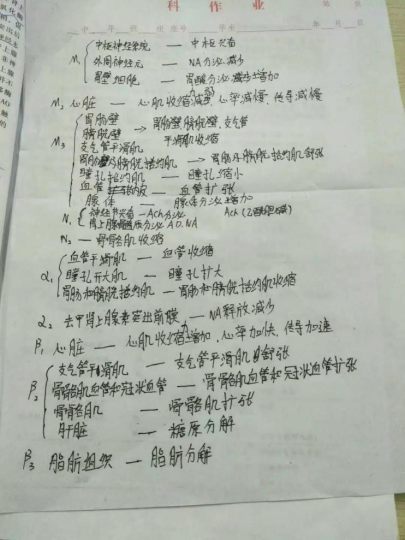 科 作 业
M₁ 中枢神经系统 — 中枢兴奋
外周神经元 — NA分泌减少
胃壁细胞 — 胃酸分泌增加
M₂ 心脏 — 心肌收缩力减弱、心率减慢、传导减慢
M₃ 胃肠壁
膀胱壁 → 胃肠壁、膀胱壁、支气管
支气管平滑肌 平滑肌收缩
胃肠及膀胱括约肌 → 胃肠及膀胱括约肌舒张
瞳孔括约肌 — 瞳孔缩小
血管内皮 — 血管扩张
腺体 — 腺体分泌增加
N₁ 神经节兴奋 — ACh分泌 Ach(乙酰胆碱)
肾上腺髓质分泌AD.NA
N₂ — 骨骼肌收缩
α₁ 血管平滑肌 — 血管收缩
瞳孔开大肌 — 瞳孔扩大
胃肠和膀胱括约肌 — 胃肠和膀胱括约肌收缩
α₂ 去甲肾上腺素突出前膜 — NA释放减少
β₁ 心脏 — 心肌收缩力增加、心率加快、传导加速
β₂ 支气管平滑肌 — 支气管平滑肌舒张
骨骼肌血管和冠状血管 — 骨骼肌血管和冠状血管扩张
骨骼肌 — 骨骼肌扩张
肝脏 — 糖原分解
β₃ 脂肪组织 — 脂肪分解